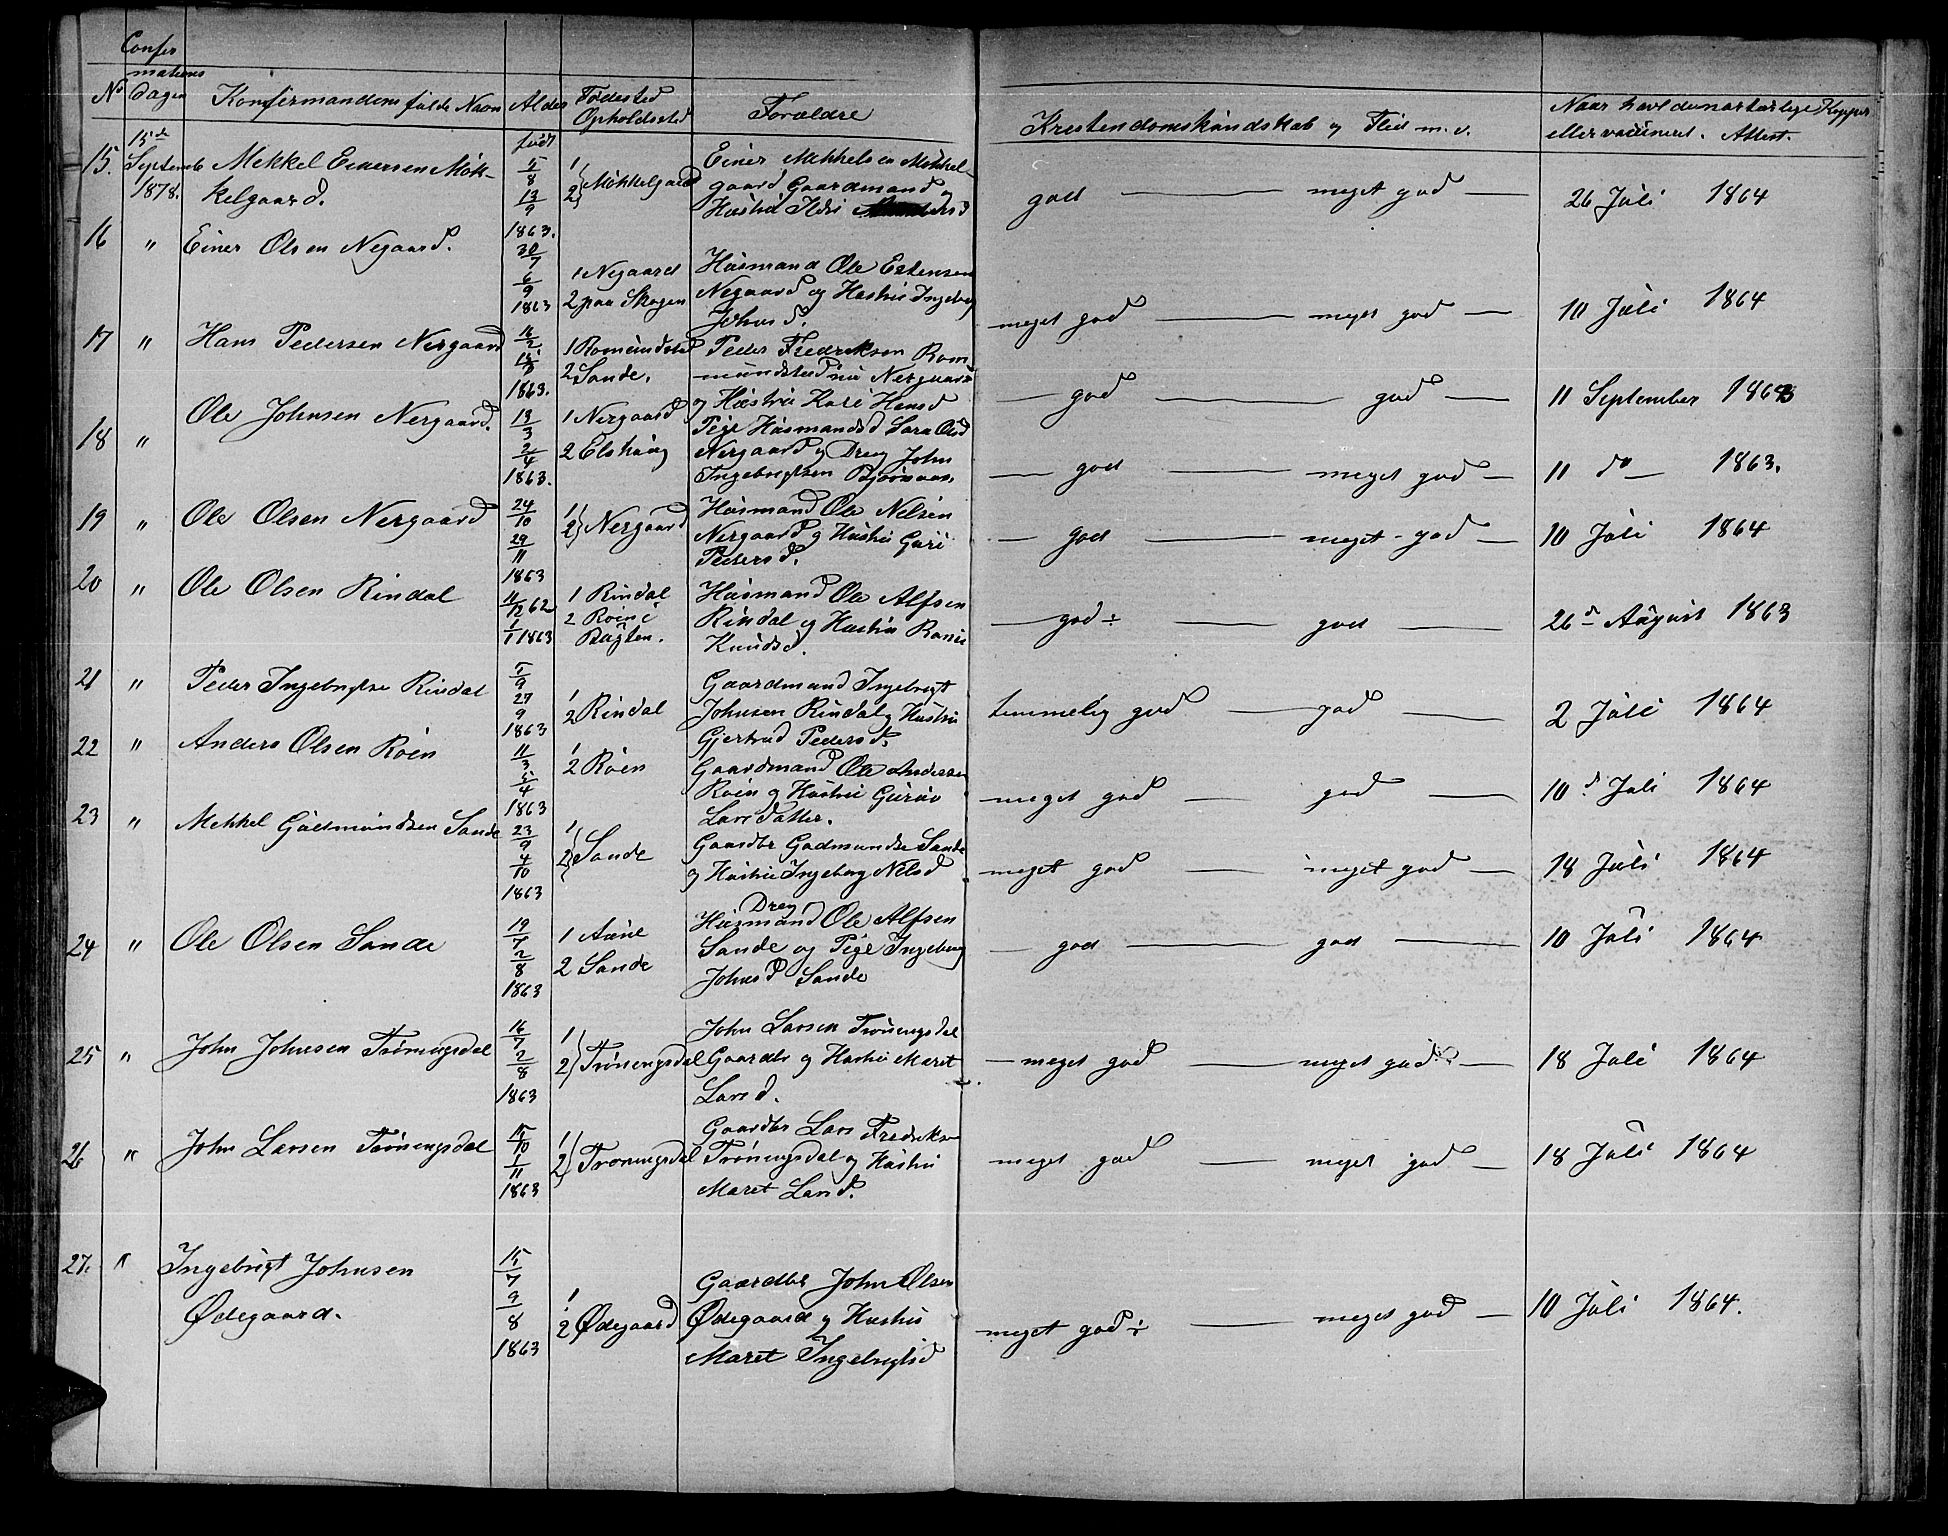 Confir
mations
No dagen Konfirmandens fulde Navn Alder Fødested Opholdssted Forældre Kristendomskundskab og Flid m. v. Naar havt de naturlige Kopper
eller vaccineret. Attest.
født
15. 15de Septemb 1878. Mekkel Einersen Møk-
kelgaard. 5/8 13/9 1863. 1 2} Møkkelgaard
Einer Mekkelsen Møkkel-
gaard Gaardmand og
Hustru Ildri
god — meget god — 26 Juli 1864
16 " Einer Olsen Negaard. 30/7 6/9 1863 1 Negaard
2 paa Skogen
Husmand Ole Estensen
Negaard og Hustru Ingebog
Johnsd.
meget god — meget god — 10 Juli 1864
17 " Hans Pedersen Nergaard 1863. 1 Romundstad
2 Sande.
Peder Fredriksen Rom
mundstad nu Nergaard
og Hustru Kari Hansd
— god — god — 11 September 1863
18 " Ole Johnsen Nergaard. 13/3 2/4 1863. 1 Nergaard
2 Elshaug
Pige Husmandsd Sara Olsd
Nergaard og Dreng John
Ingebrigtsen Bjørnaas.
— god — meget god — 11 do — 1863.
19 " Ole Olsen Nergaard 24/10 29/11 1863 1 2} Nergaard
Husmand Ole Nilsen
Nergaard og Hustru Guri
Pedersd.
— god — meget god — 10 Juli 1864
20 " Ole Olsen Rindal 11/12 62 1/1 1863 1 Rindal
2 Røen i
Bagten.
Husmand Ole Alfsen
Rindal og Hustru Ranei
Knudsd.
— god ÷ — god — 26de August 1863
21 " Peder Ingebrigtsen Rindal 5/9 27/9 1863 1 2 Rindal
Gaardmand Ingebrigt
Johnsen Rindal og Hustru
Gjertrud Pedersd.
temmelig god — god — 2 Juli 1864
22 " Anders Olsen Røen 11/3 5/4 1863 1 2 Røen
Gaardmand Ole Andersen
Røen og Hustru Guruo
Larsdatter.
meget god — god — 10d Juli 1864
23 " Mekkel Gudmundsen Sande 23/9 4/10 1863 1 2} Sande
Gaardbr Gudmundse Sande
og Hustru Ingeborg Nilsd
meget god — meget god — 18 Juli 1864
24 " Ole Olsen Sande 19/7 2/8 1863 1 Aune
2 Sande
Dreng
Husmand Ole Alfsen
Sande og Pige Ingeborg
Johnsd Sande
— god — god — 10 Juli 1864
25 " John Johnsen Trøningsdal 16/7 2/8 1863 1 2} Trønengsdal
John Larsen Trønengsdal
Gaardbr og Hustru Maret
Larsd.
— meget god — meget god — 18 Juli 1864
26 " John Larsen Trønengsdal 15/10 1/11 1863 1 2} Trøningsdal
Gaardbr Lars Fredriksen
Trøningsdal og Hustru
Maret Larsd.
meget god — meget god — 18 Juli 1864
27. " Ingebrigt Johnsen
Ødegaard. 15/7 9/8 1863 1 2 Ødegaard
Gaardbr John Olsen
Ødegaard og Hustru
Maret Ingebrigtsd
meget god ÷ — meget god — 10 Juli 1864.